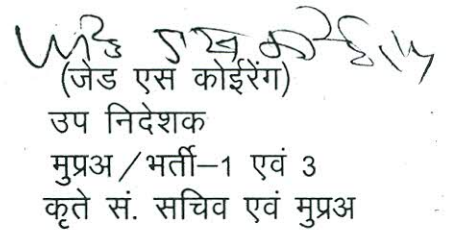 (जेड एस कोईरेंग)
उप निदेशक
मुप्रअ / भर्ती–1 एवं 3
कृते सं. सचिव एवं मुप्रअ